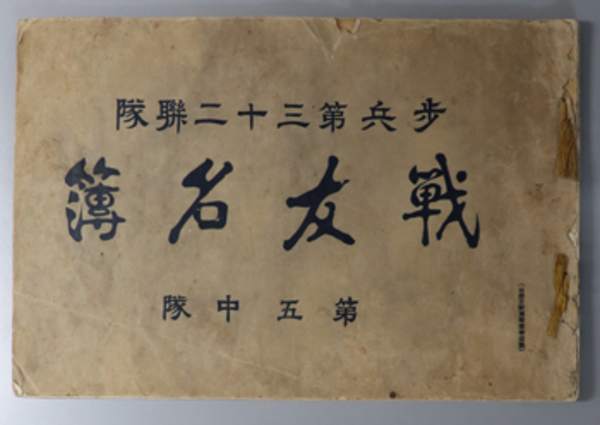 歩兵第三十二聯隊
戰友名簿
第五中隊